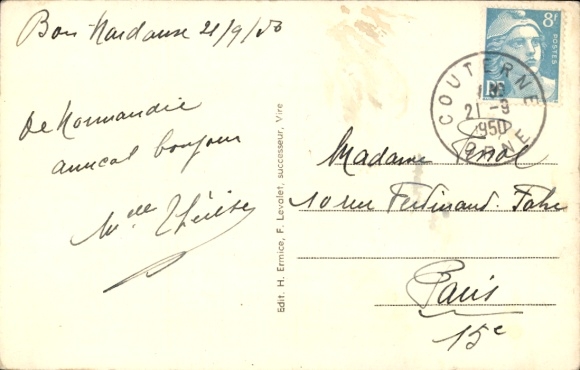 21/9/50
De Normandie
amical bonjour
Mlle Thérèse
Edit. H. Ermice, F. Levalet, successeur, Vire
8F
POSTES
RF
COUTERNE
21 - 9
1950
ORNE
Madame
10 rue Ferdinand. Fabre
Paris
15e